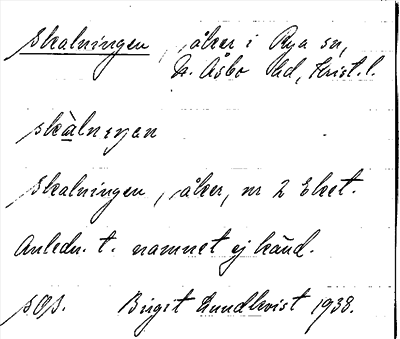 Skalningen, åker i Rya sn,
N. Åsbo hd, Krist. l.
skàlnıŋən
Skalningen, åker, nr 2 Eket.
Anledn. t. namnet ej känd.
SOS. Birgit Lundkvist 1938.